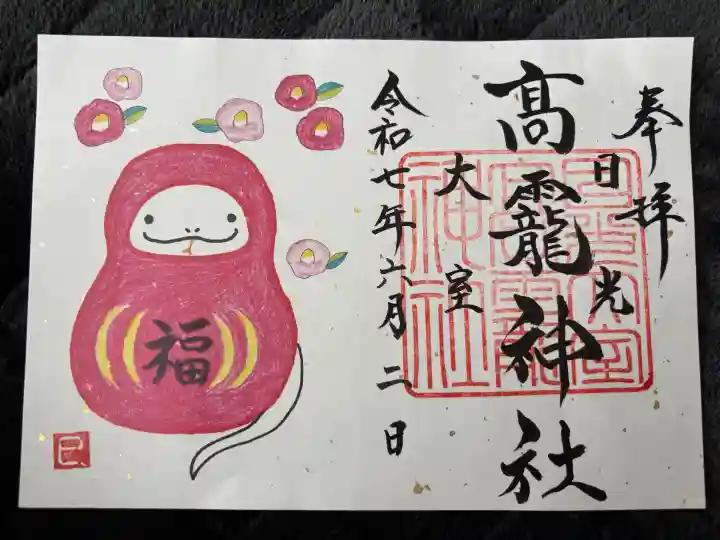 奉拝
日光
高龗神社
大室
令和七年六月二日
福
巳